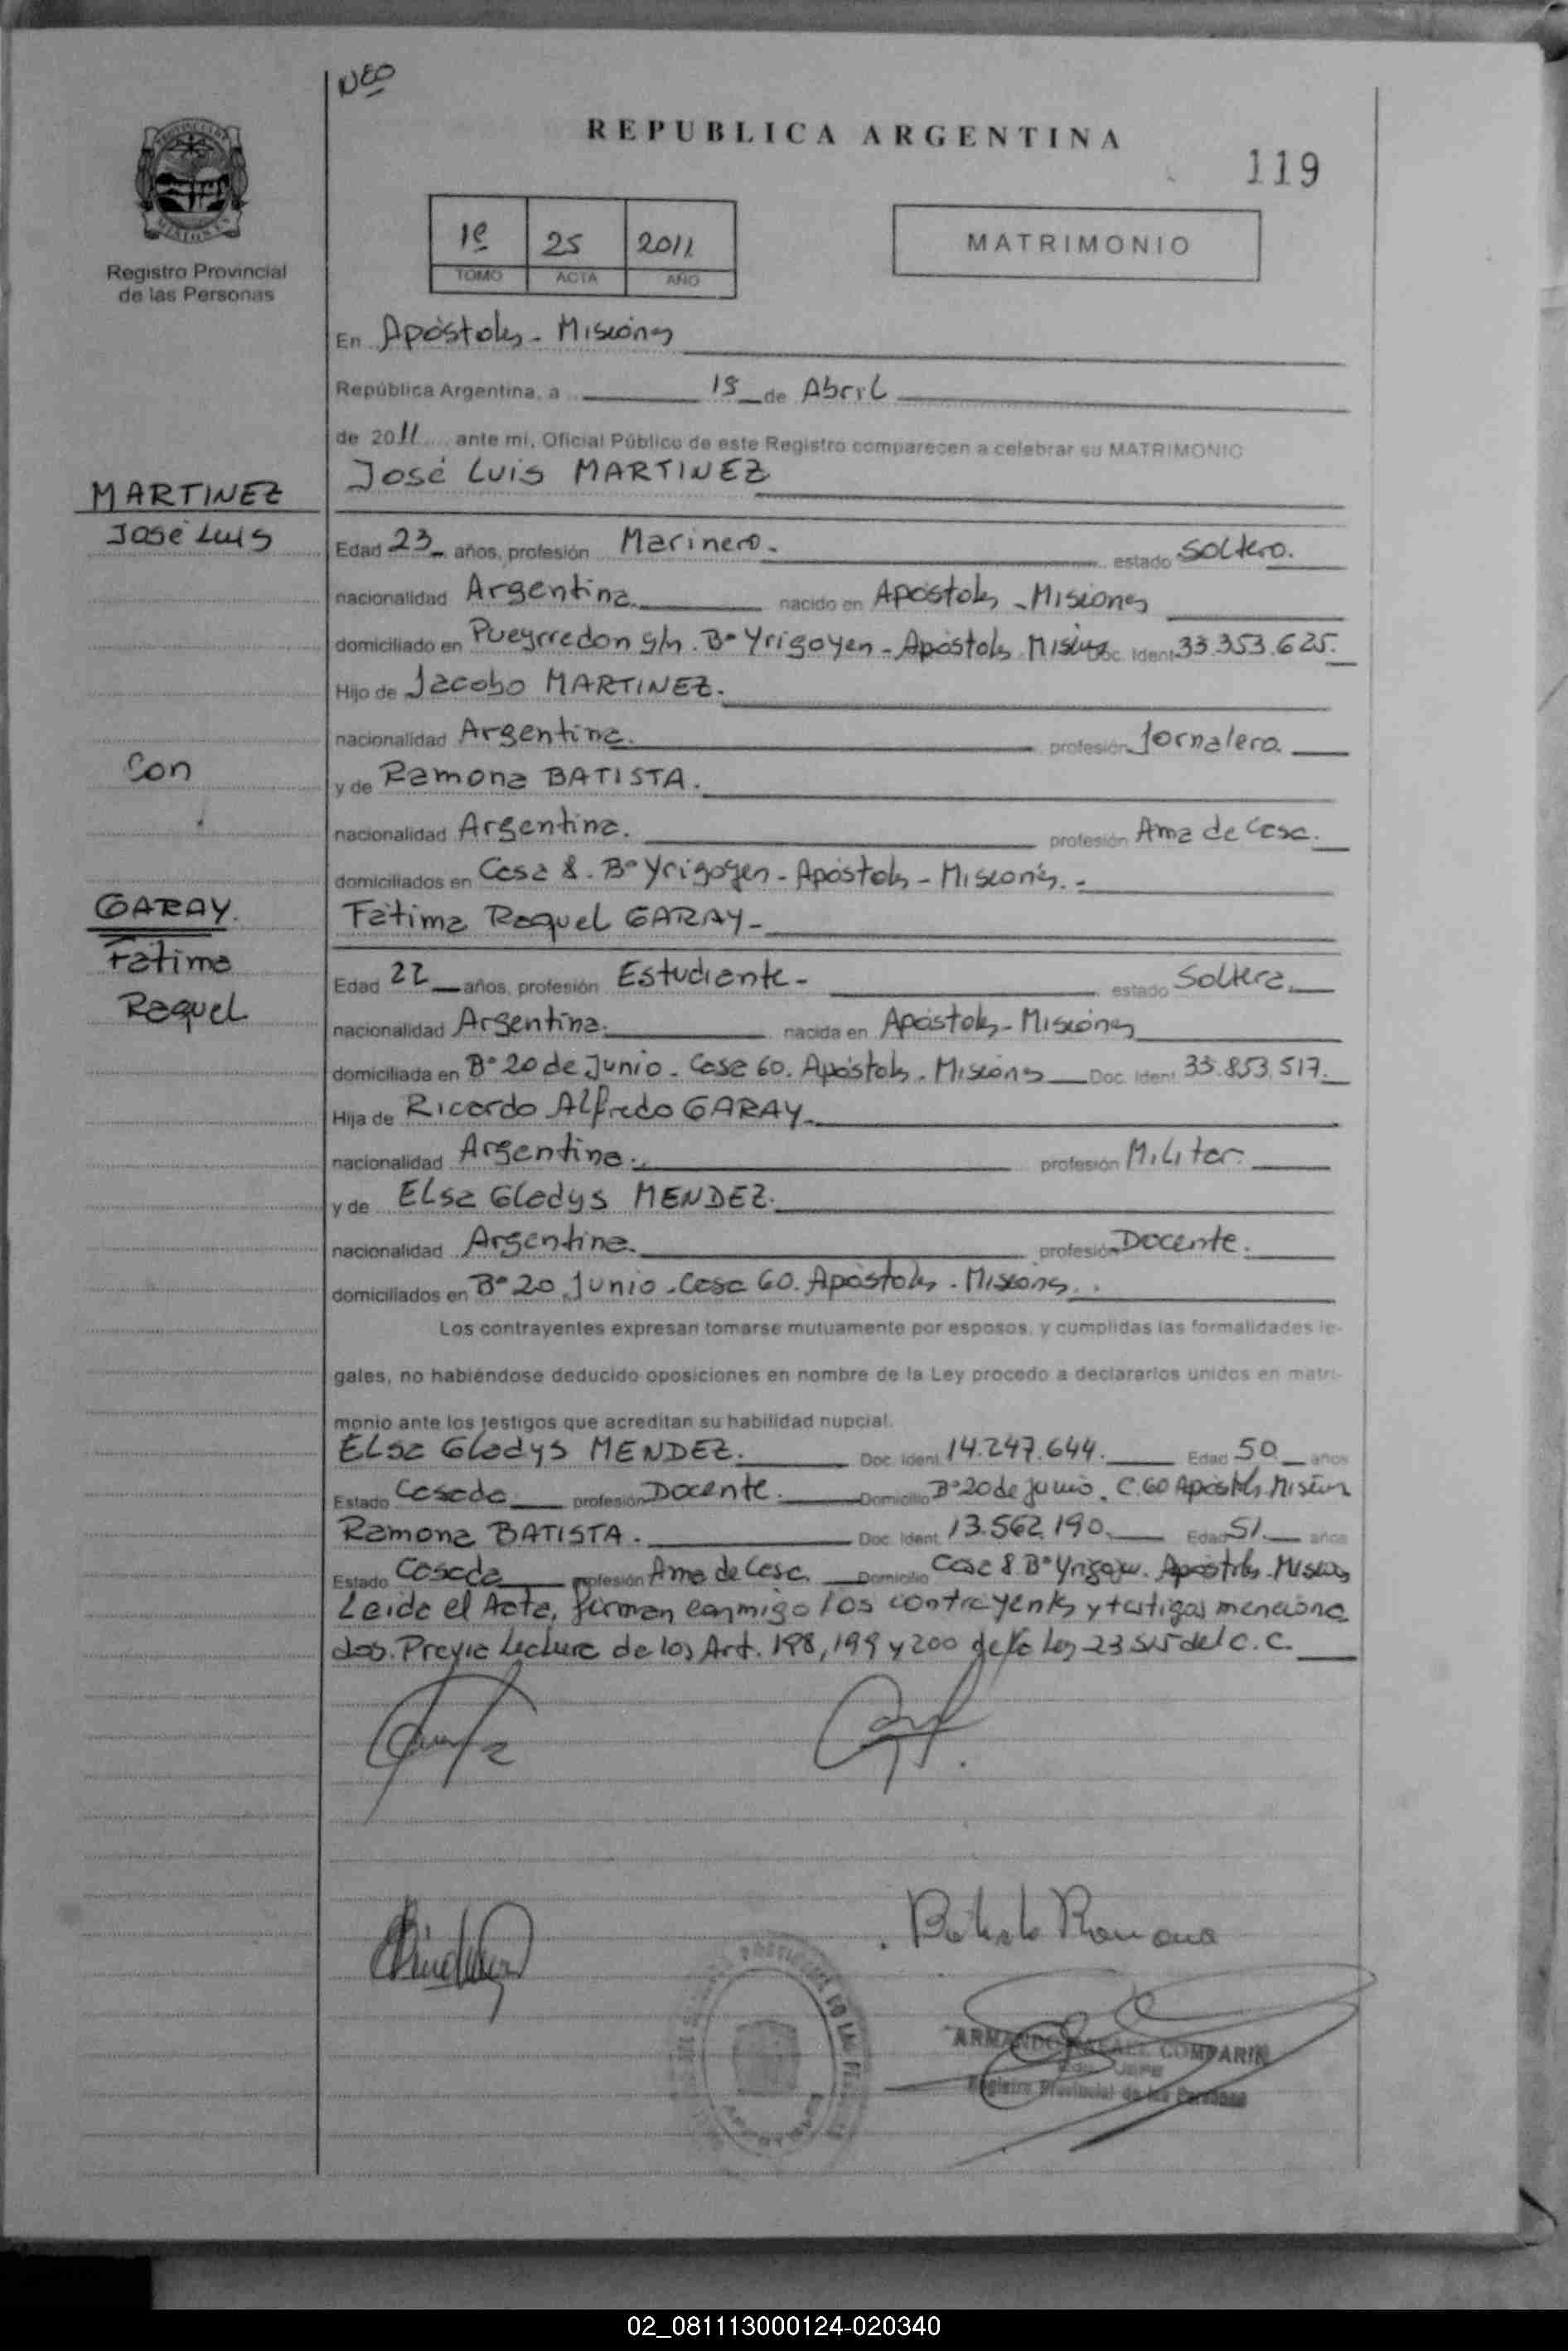 NEO
REPUBLICA ARGENTINA
119
1º 25 2011
TOMO ACTA AÑO
MATRIMONIO
Registro Provincial
de las Personas
En Apóstoles - Misiones
República Argentina, a 15 de Abril
de 2011 ante mi, Oficial Público de este Registro comparecen a celebrar su MATRIMONIO
José Luis MARTINEZ
MARTINEZ
José Luis
Edad 23 años, profesión Marinero. estado Soltero.
nacionalidad Argentina nacido en Apóstoles - Misiones
domiciliado en Pueyrredon s/n. Bº Yrigoyen - Apóstoles Misiones Doc. Ident. 33.353.625.
Hijo de Jacobo MARTINEZ.
nacionalidad Argentina. profesión Jornalero.
Con
y de Ramona BATISTA.
nacionalidad Argentina. profesión Ama de Casa.
domiciliados en Casa 8. Bº Yrigoyen - Apóstoles - Misiones. -
GARAY.
Fátima
Raquel
Fátima Raquel GARAY -
Edad 22 años, profesión Estudiante - estado Soltera.
nacionalidad Argentina. nacida en Apóstoles - Misiones
domiciliada en Bº 20 de Junio - Casa 60. Apóstoles - Misiones Doc. Ident. 33.853.517.
Hija de Ricardo Alfredo GARAY.
nacionalidad Argentina. profesión Militar.
y de Elsa Gladys MENDEZ.
nacionalidad Argentina. profesión Docente.
domiciliados en Bº 20 Junio - Casa 60. Apóstoles - Misiones.
Los contrayentes expresan tomarse mutuamente por esposos, y cumplidas las formalidades le-
gales, no habiéndose deducido oposiciones en nombre de la Ley procedo a declararlos unidos en matri-
monio ante los testigos que acreditan su habilidad nupcial.
Elsa Gladys MENDEZ. Doc. Ident. 14.247.644. Edad 50 años
Estado Casada profesión Docente. Domicilio Bº 20 de Junio. C. 60 Apóstoles Misiones
Ramona BATISTA. Doc. Ident. 13.562.190. Edad 51 años
Estado Casada profesión Ama de Casa. Domicilio Casa 8 Bº Yrigoyen. Apóstoles - Misiones
Leida el Acta, firman conmigo los contrayentes y testigos menciona
dos. Previa Lectura de los Art. 198, 199 y 200 de la Ley 23515 del C.C.
Batista Ramona
ARMANDO RAFAEL COMPARIN
Registro Provincial de las Personas
02_081113000124-020340